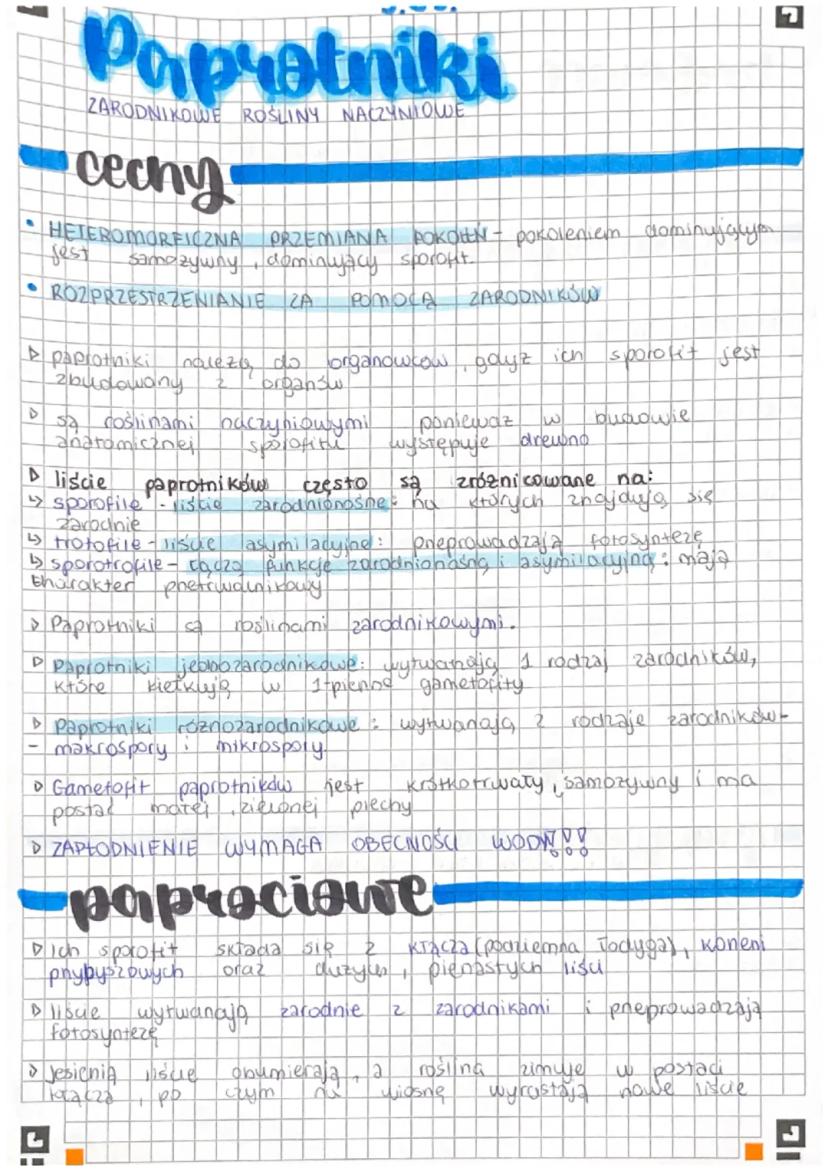 Paprotniki
ZARODNIKOWE ROŚLINY NACZYNIOWE
cechy
• HETEROMORFICZNA PRZEMIANA POKOLEŃ - pokoleniem dominującym
jest samożywny, dominujący sporofit.
• ROZPRZESTRZENIANIE ZA POMOCĄ ZARODNIKÓW
▷ paprotniki należą do organowców, gdyż ich sporofit jest
zbudowany z organów
▷ są roślinami naczyniowymi ponieważ w budowie
anatomicznej sporofitu występuje drewno
▷ liście paprotników często są zróżnicowane na:
↳ sporofile - liście zarodnionośne: na których znajdują się
zarodnie
↳ trofofile - liście asymilacyjne: przeprowadzają fotosyntezę
↳ sporotrofile - łączą funkcję zarodnionośną i asymilacyjną: mają
charakter przetrwalnikowy
▷ Paprotniki są roślinami zarodnikowymi.
▷ Paprotniki jednozarodnikowe: wytwarzają 1 rodzaj zarodników,
które kiełkują w 1-pienne gametofity
▷ Paprotniki różnozarodnikowe: wytwarzają 2 rodzaje zarodników-
- makrospory i mikrospory.
▷ Gametofit paprotników jest krótkotrwały, samożywny i ma
postać małej, zielonej plechy
▷ ZAPŁODNIENIE WYMAGA OBECNOŚCI WODY!!!
paprociowe
▷ Ich sporofit składa się z kłącza (podziemna łodyga), korzeni
przybyszowych oraz dużych, pierzastych liści
▷ liście wytwarzają zarodnie z zarodnikami i przeprowadzają
fotosyntezę
▷ Jesienią liście obumierają, a roślina zimuje w postaci
kłącza, po czym na wiosnę wyrastają nowe liście